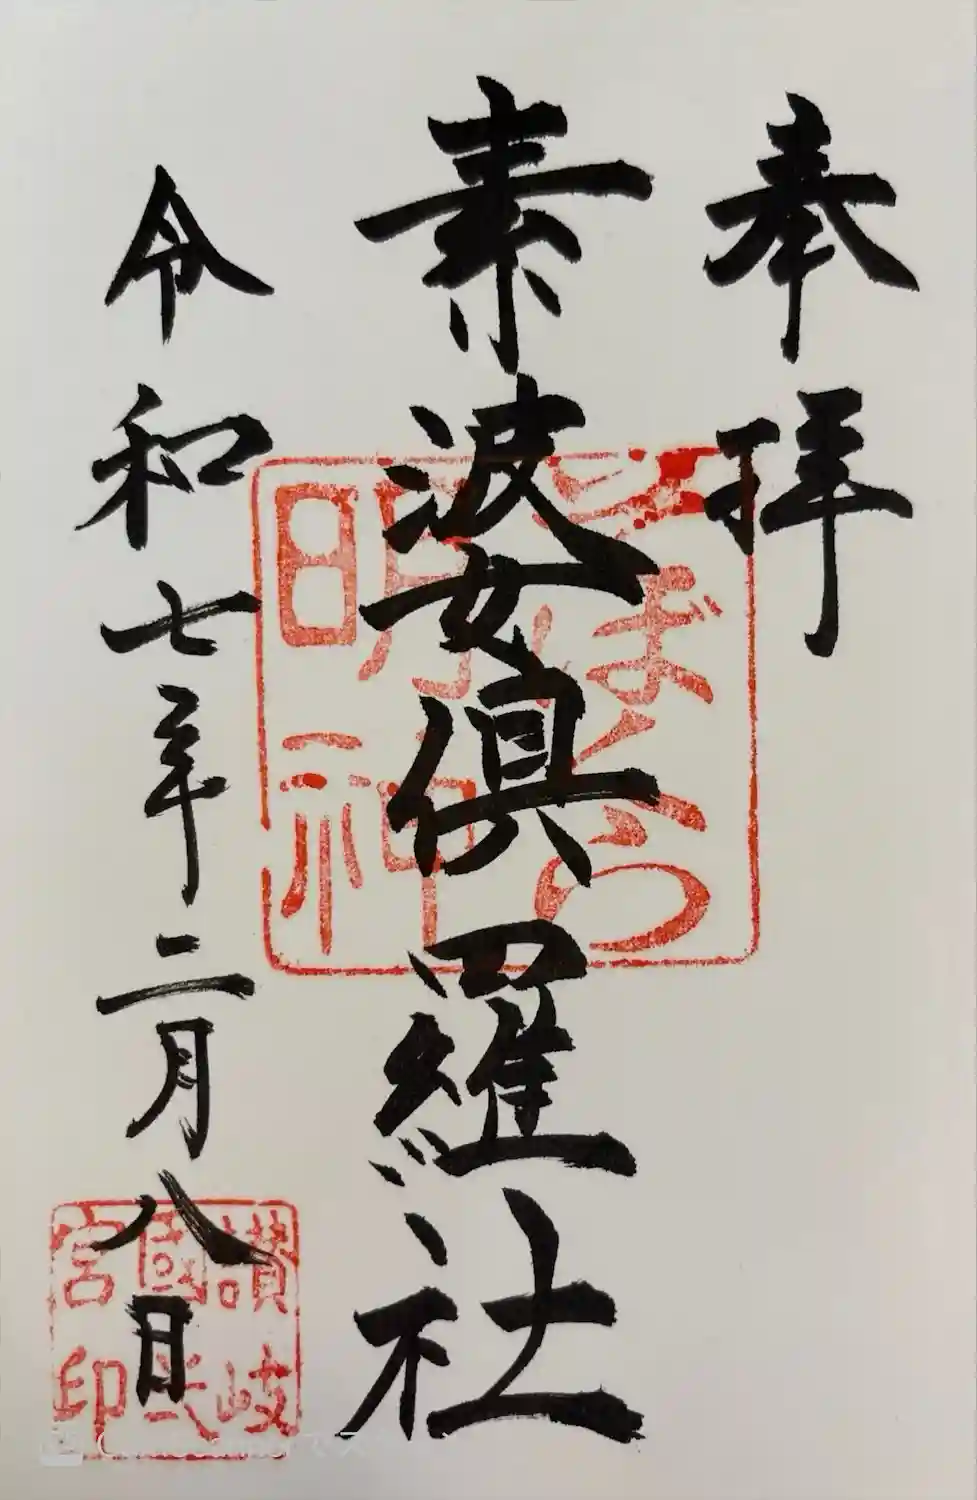 奉拝
素婆倶羅社
令和七年二月八日
そばくら
明神
讃岐
國弐
宮印